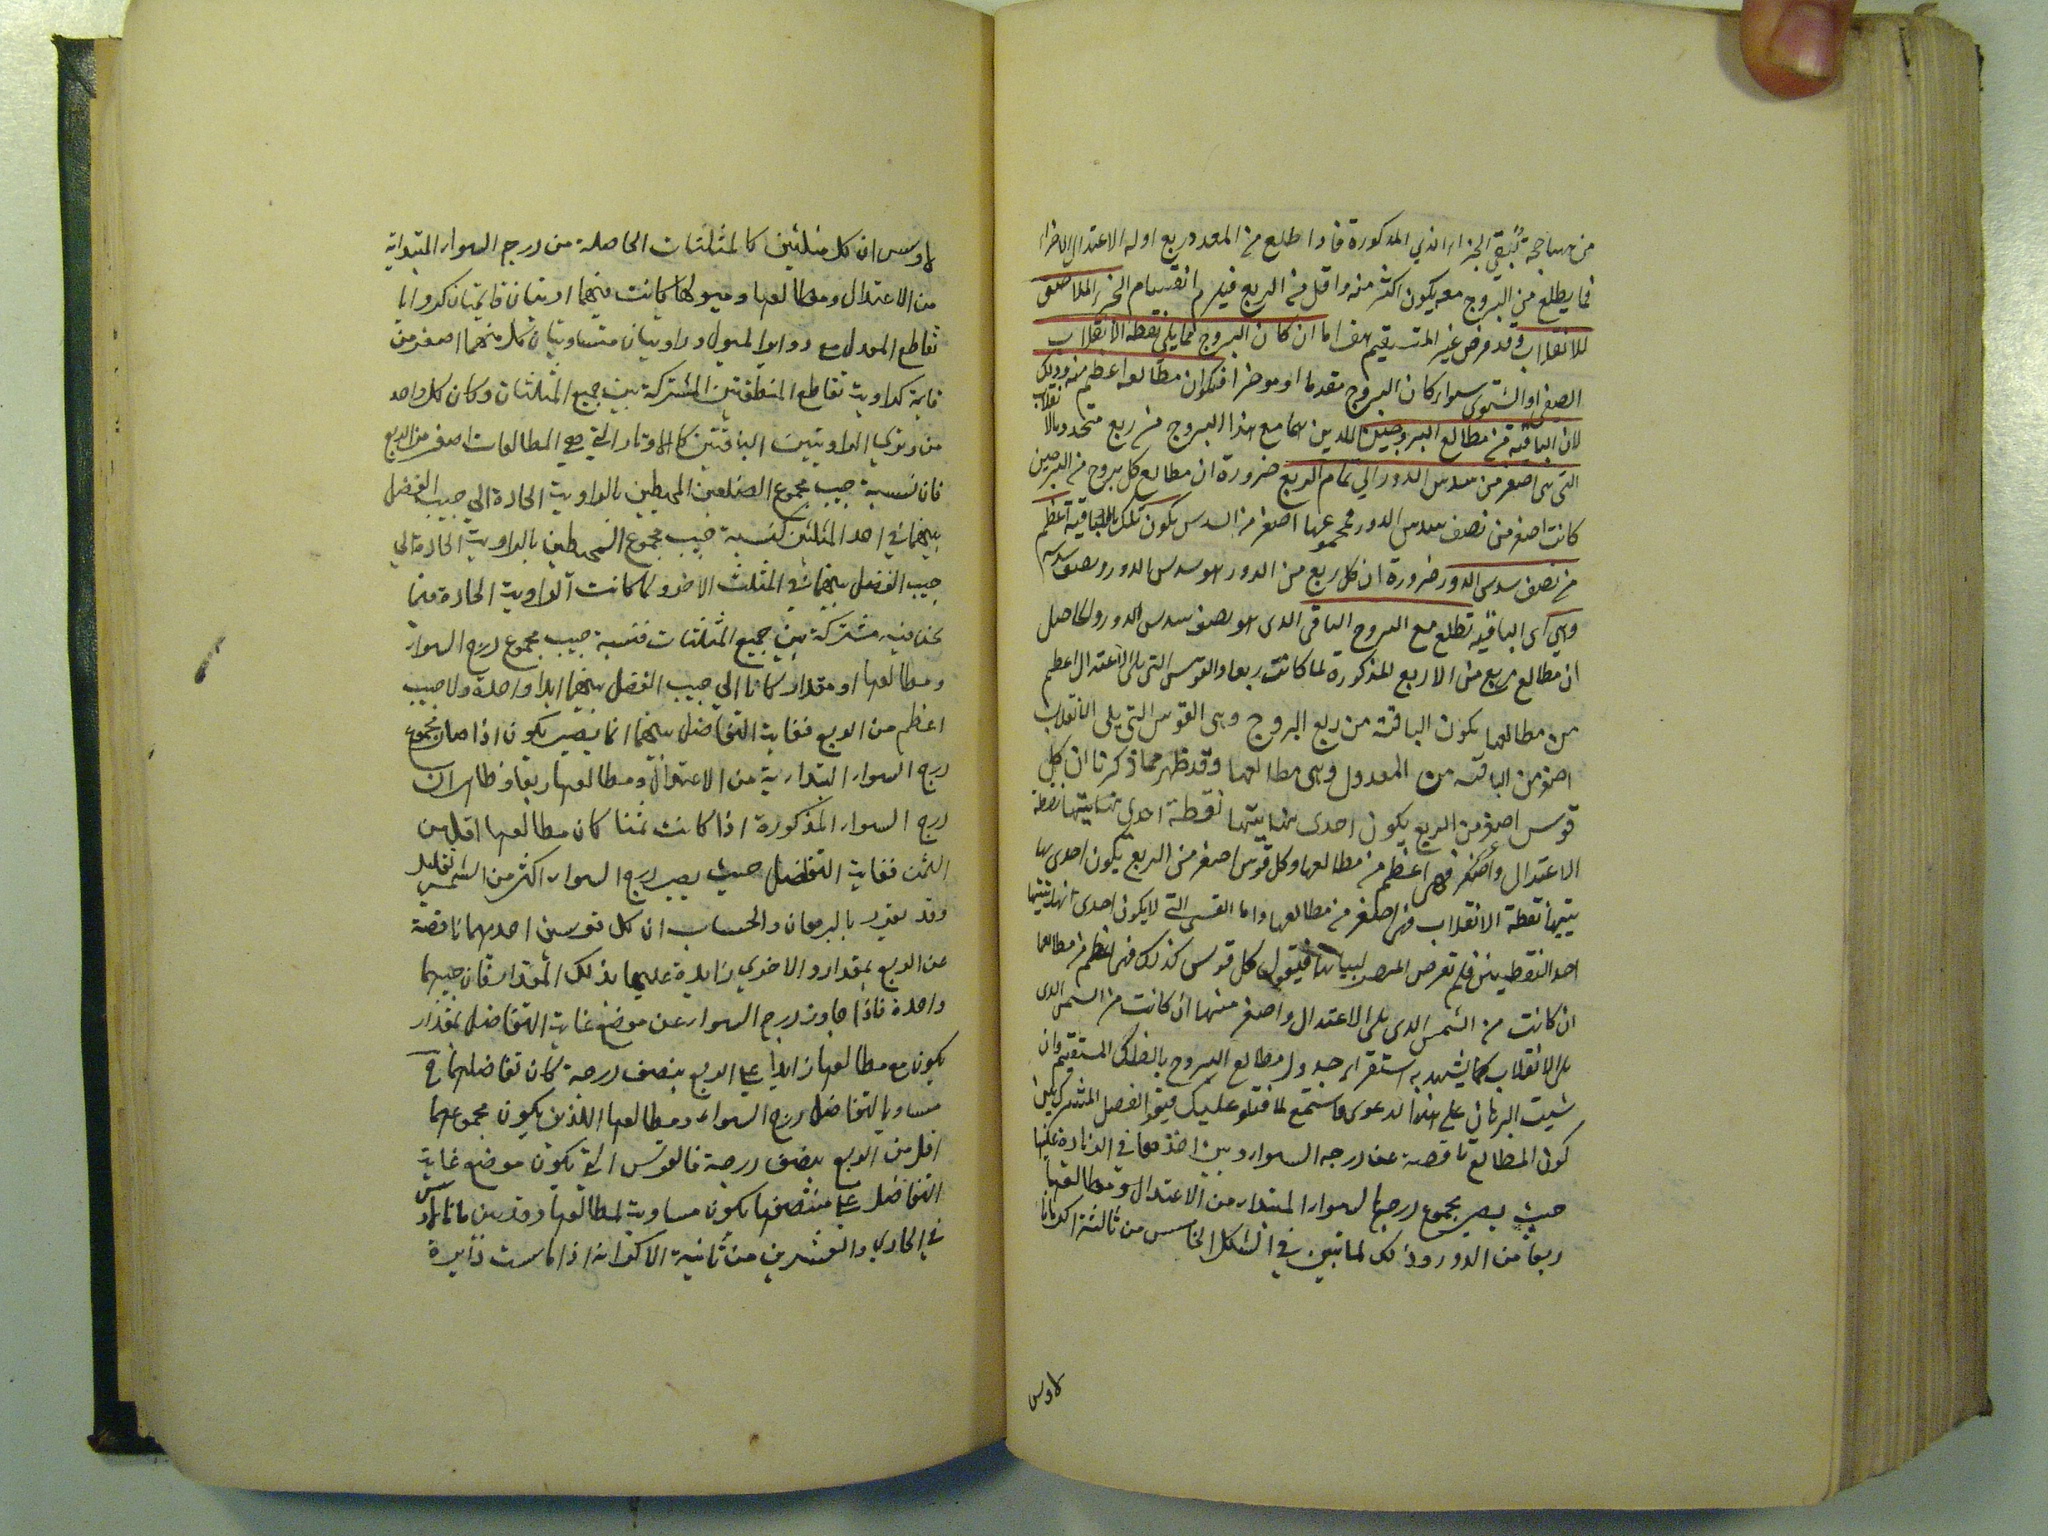 فما يطلع من البروج معه يكون اكثر منه واقل من الربع فيلزم انقسام الجزء الملاصق
للانقلاب وقد فرض غير المستقيم هف اما ان كان البروج مما يلي نقطة الانقلاب
الصيفي او الشتوي سواء كان البروج مقدما او موخرا فيكون مطالعه اعظم منه وذلك
لان الباقية من مطالع البروجين الذين هما مع هذا البروج من ربع متحدد بالانقلاب
التي هي اصغر من سدس الدور الي تمام الربع ضرورة ان مطالع كل بروج من البروجين
كانت اصغر من نصف سدس الدور فمجموعها اصغر من السدس يكون تلك الباقية اعظم
من نصف سدس الدور ضرورة ان كل ربع من الدور هو سدس الدور ونصف سدسه
وهي اى الباقية تطلع مع البروج الباقي الذي هو نصف سدس الدور والحاصل
ان مطالع ربع من الارباع المذكورة لما كانت ربعا والقوس التي يلي الاعتدال اعظم
من مطالعها يكون الباقية من ربع البروج وهي القوس التي يلي الانقلاب
اصغر من الباقية من المعدل وهي مطالعها وقد ظهر مما ذكرنا ان كل
قوس اصغر من الربع يكون احدى نهايتيها نقطة
الاعتدال فهي اعظم من مطالعها وكل قوس اصغر من الربع يكون احدى نها
يتيها نقطة الانقلاب فهي اصغر من مطالعها واما القسي التي لا يكون احدى نهايتيها
احد النقطتين فلم تعرض المص لبيانها فنقول كل قوس كذلك فهي اعظم من مطالعها
ان كانت من الثمن الذي يلي الاعتدال واصغر منها ان كانت من الثمن الذي
يلي الانقلاب كما يشهد به استقراء جدول مطالع البروج بالفلك المستقيم وان
شيت البرهان على هذا الدعوى فاستمع لما نتلو عليك فنقول الفصل المشترك بين
كون المطالع ناقصة عن درجه السواء وبين اخذها في الزيادة عليها
حيث يصير مجموع درجها السواء المبتداء من الاعتدال ومطالعها
ربعا من الدور وذلك لما تبين في الشكل الخامس من ثالثة اكر مانا
لاوس
لاوس ان كل مثلثين كالمثلثات الحاصلة من درج السواء المبتداية
من الاعتدال ومطالعها وميولها كانت فيهما زاويتان قايمتان كزوايا
تقاطع المعدل مع دواير الميول وزاويتان متساويتان كل منهما اصغر من
قايمة كزاوية تقاطع المنطقتين المشتركة بين جميع المثلثات وكان كل واحد
من وتري الزاويتين الباقيتين كالاوتار التي هي المطالعات اصغر من الربع
فان نسبة جيب مجموع الضلعين المحيطين بالزاوية الحادة الي جيب الفضل
بينهما في احد المثلثين كنسبة جيب مجموع المحيطين بالزاوية الحادة الي
جيب الفضل بينهما في المثلث الاخر ولما كانت الزاوية الحادة فيما
نحن فيه مشتركة بين جميع المثلثات فنسبة جيب مجموع درج السواء
ومطالعها او مقدار كانا الي جيب الفضل بينهما ابدا واحدة ولا جيب
اعظم من الربع فغاية التفاضل بينهما انما يكون اذا صار مجموع
درج السواء المبتداية من الاعتدال ومطالعها ربعا وظاهر ان
درج السواء المذكورة اذا كانت ثمنا كان مطالعها اقل من
الثمن فغاية التفاضل حيث يصير درج السواء اكثر من الثمن بقليل
وقد تقرر بالبرهان والحساب ان كل قوسين احديهما ناقصة
عن الربع بمقدار والاخرى زايدة عليها بذلك المقدار فان جيبهما
واحدة فاذا جاوز درج السواء عن موضع غاية التفاضل بمقدار
يكون مع مطالعها زايدا على الربع بنصف درجة كان تفاضلهما ح
مساويا لتفاضل درج السواء ومطالعها اللذين يكون مجموعهما
اقل من الربع بنصف درجة فالقوس التي يكون موضع غاية
التفاضل على منتصفها يكون مساوية لمطالعها وقد بين مانالاوس
في الحادي والعشرين من ثانية الاكر انه اذا ماست دايرة